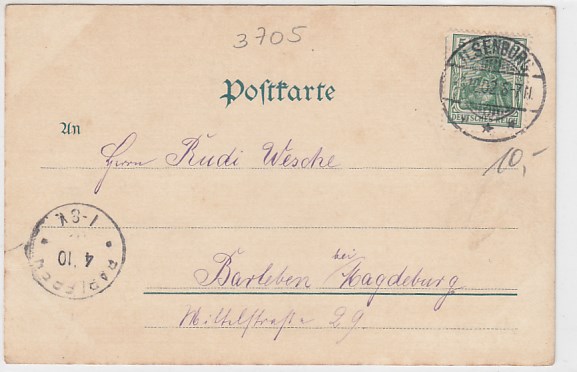 3705
ILSENBURG
5
DEUTSCHES REICH
Postkarte
An
Herrn Rudi Wesche
10,-
1-8V
4 10
BARLEBEN
bei
Barleben Magdeburg
Mittelstraße 29.